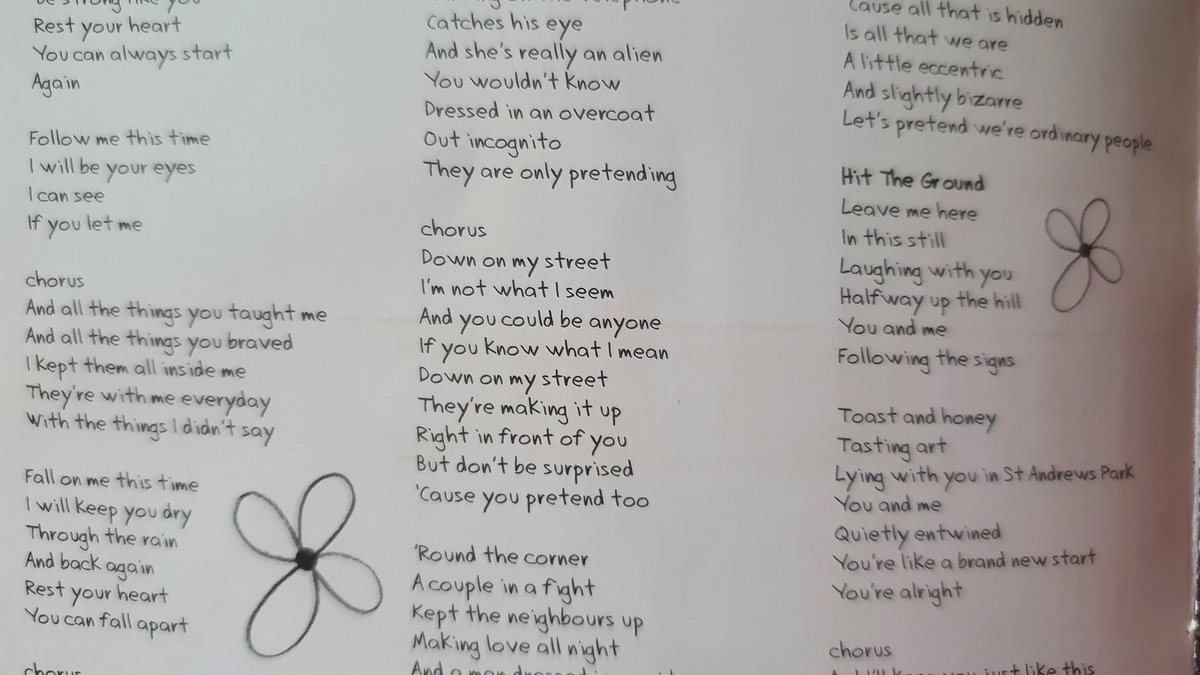 Rest your heart
You can always start
Again
Follow me this time
I will be your eyes
I can see
If you let me
chorus
And all the things you taught me
And all the things you braved
I kept them all inside me
They're with me everyday
With the things I didn't say
Fall on me this time
I will keep you dry
Through the rain
And back again
Rest your heart
You can fall apart
chorus
catches his eye
And she's really an alien
You wouldn't know
Dressed in an overcoat
Out incognito
They are only pretending
chorus
Down on my street
I'm not what I seem
And you could be anyone
If you know what I mean
Down on my street
They're making it up
Right in front of you
But don't be surprised
'Cause you pretend too
'Round the corner
A couple in a fight
Kept the neighbours up
Making love all night
And a man dressed
Cause all that is hidden
Is all that we are
A little eccentric
And slightly bizarre
Let's pretend we're ordinary people
Hit The Ground
Leave me here
In this still
Laughing with you
Halfway up the hill
You and me
Following the signs
Toast and honey
Tasting art
Lying with you in St Andrews Park
You and me
Quietly entwined
You're like a brand new start
You're alright
chorus
you just like this